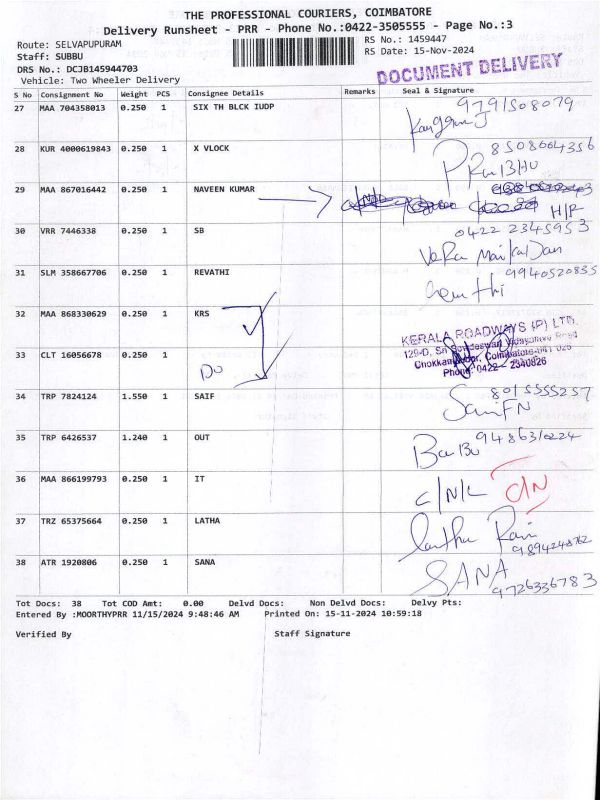 THE PROFESSIONAL COURIERS, COIMBATORE
Delivery Runsheet - PRR - Phone No.:0422-3505555 - Page No.:3
Route: SELVAPUPURAM RS No.: 1459447
Staff: SUBBU RS Date: 15-Nov-2024
DRS No.: DCJB145944703
Vehicle: Two Wheeler Delivery
DOCUMENT DELIVERY
S No Consignment No Weight PCS Consignee Details Remarks Seal & Signature
27 MAA 704358013 0.250 1 SIX TH BLCK IUDP 9791508079
28 KUR 4000619843 0.250 1 X VLOCK 8508004356
29 MAA 867016442 0.250 1 NAVEEN KUMAR
30 VRR 7446338 0.250 1 SB 0422 2345953
31 SLM 358667706 0.250 1 REVATHI 9940520855
32 MAA 868330629 0.250 1 KRS
KERALA ROADWAYS (P) LTD.
33 CLT 16056678 0.250 1
Do
Phone: 0422 - 2340826
34 TRP 7824124 1.550 1 SAIF 8015555257
35 TRP 6426537 1.240 1 OUT Babu 9486310224
36 MAA 866199793 0.250 1 IT C/N/L C/N
37 TRZ 65375664 0.250 1 LATHA
38 ATR 1920806 0.250 1 SANA SANA
9726336783
Tot Docs: 38 Tot COD Amt: 0.00 Delvd Docs: Non Delvd Docs: Delvy Pts:
Entered By :MOORTHYPRR 11/15/2024 9:48:46 AM Printed On: 15-11-2024 10:59:18
Verified By Staff Signature